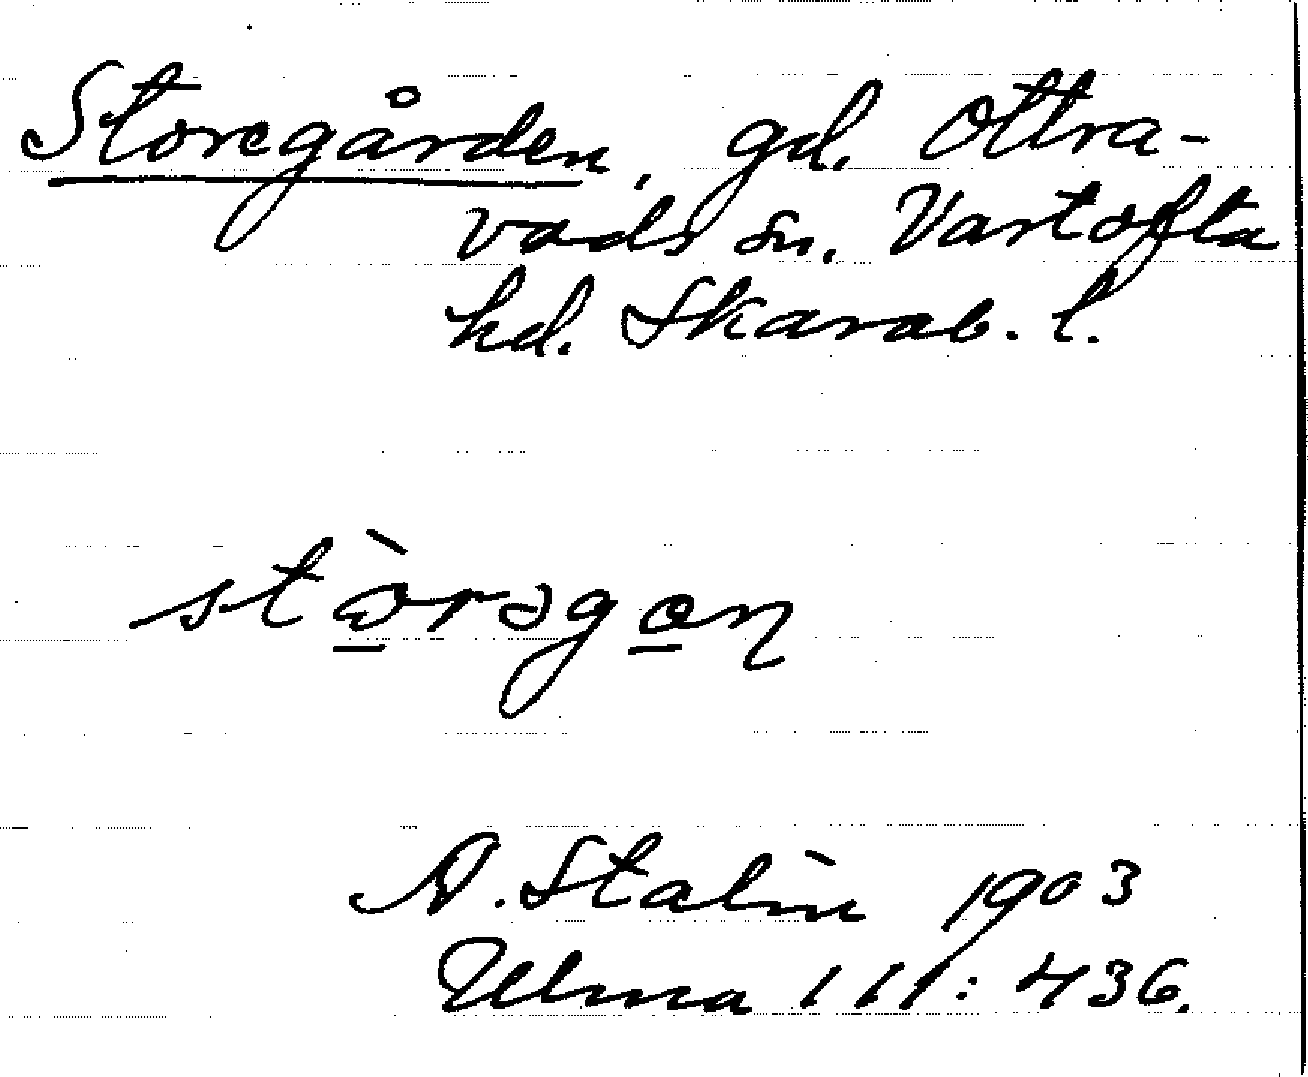 Storegården, gd. Ottra-
vads sn. Vartofta
hd. Skarab. l.
stòrəgɑn
A. Stalin 1903
Ulma 111: 436.